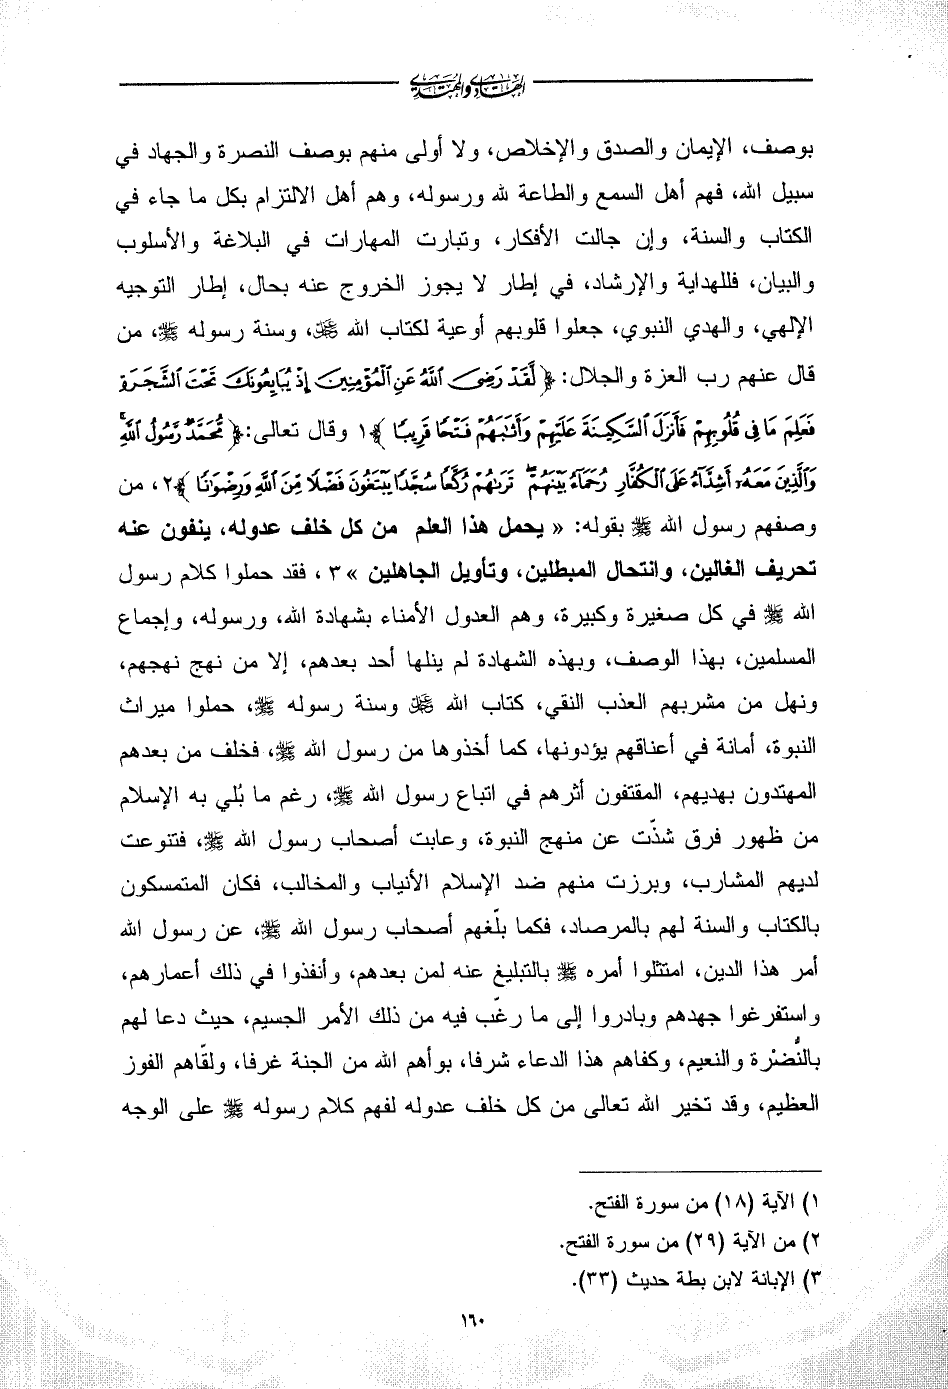 الهادي والمهتدي
بوصف، الإيمان والصدق والإخلاص، ولا أولى منهم بوصف النصرة والجهاد في
سبيل الله، فهم أهل السمع والطاعة لله ورسوله، وهم أهل الالتزام بكل ما جاء في
الكتاب والسنة، وإن جالت الأفكار، وتبارت المهارات في البلاغة والأسلوب
والبيان، فللهداية والإرشاد، في إطار لا يجوز الخروج عنه بحال، إطار التوجيه
الإلهي، والهدي النبوي، جعلوا قلوبهم أوعية لكتاب الله ﷻ، وسنة رسوله ﷺ، من
قال عنهم رب العزة والجلال: ﴿ لَّقَدْ رَضِىَ ٱللَّهُ عَنِ ٱلْمُؤْمِنِينَ إِذْ يُبَايِعُونَكَ تَحْتَ ٱلشَّجَرَةِ
فَعَلِمَ مَا فِى قُلُوبِهِمْ فَأَنزَلَ ٱلسَّكِينَةَ عَلَيْهِمْ وَأَثَٰبَهُمْ فَتْحًا قَرِيبًا ﴾١ وقال تعالى: ﴿ مُّحَمَّدٌ رَّسُولُ ٱللَّهِ ۚ
وَٱلَّذِينَ مَعَهُۥٓ أَشِدَّآءُ عَلَى ٱلْكُفَّارِ رُحَمَآءُ بَيْنَهُمْ ۖ تَرَىٰهُمْ رُكَّعًا سُجَّدًا يَبْتَغُونَ فَضْلًا مِّنَ ٱللَّهِ وَرِضْوَٰنًا ﴾٢، من
وصفهم رسول الله ﷺ بقوله: « يحمل هذا العلم من كل خلف عدوله، ينفون عنه
تحريف الغالين، وانتحال المبطلين، وتأويل الجاهلين »٣ ، فقد حملوا كلام رسول
الله ﷺ في كل صغيرة وكبيرة، وهم العدول الأمناء بشهادة الله، ورسوله، وإجماع
المسلمين، بهذا الوصف، وبهذه الشهادة لم ينلها أحد بعدهم، إلا من نهج نهجهم،
ونهل من مشربهم العذب النقي، كتاب الله ﷻ وسنة رسوله ﷺ، حملوا ميراث
النبوة، أمانة في أعناقهم يؤدونها، كما أخذوها من رسول الله ﷺ، فخلف من بعدهم
المهتدون بهديهم، المقتفون أثرهم في اتباع رسول الله ﷺ، رغم ما بُلي به الإسلام
من ظهور فرق شذّت عن منهج النبوة، وعابت أصحاب رسول الله ﷺ، فتنوعت
لديهم المشارب، وبرزت منهم ضد الإسلام الأنياب والمخالب، فكان المتمسكون
بالكتاب والسنة لهم بالمرصاد، فكما بلّغهم أصحاب رسول الله ﷺ، عن رسول الله
أمر هذا الدين، امتثلوا أمره ﷺ بالتبليغ عنه لمن بعدهم، وأنفذوا في ذلك أعمارهم،
واستفرغوا جهدهم وبادروا إلى ما رغّب فيه من ذلك الأمر الجسيم، حيث دعا لهم
بالنُّضْرة والنعيم، وكفاهم هذا الدعاء شرفا، بوأهم الله من الجنة غرفا، ولقّاهم الفوز
العظيم، وقد تخير الله تعالى من كل خلف عدوله لفهم كلام رسوله ﷺ على الوجه
١) الآية (١٨) من سورة الفتح.
٢) من الآية (٢٩) من سورة الفتح.
٣) الإبانة لابن بطة حديث (٣٣).
١٦٠